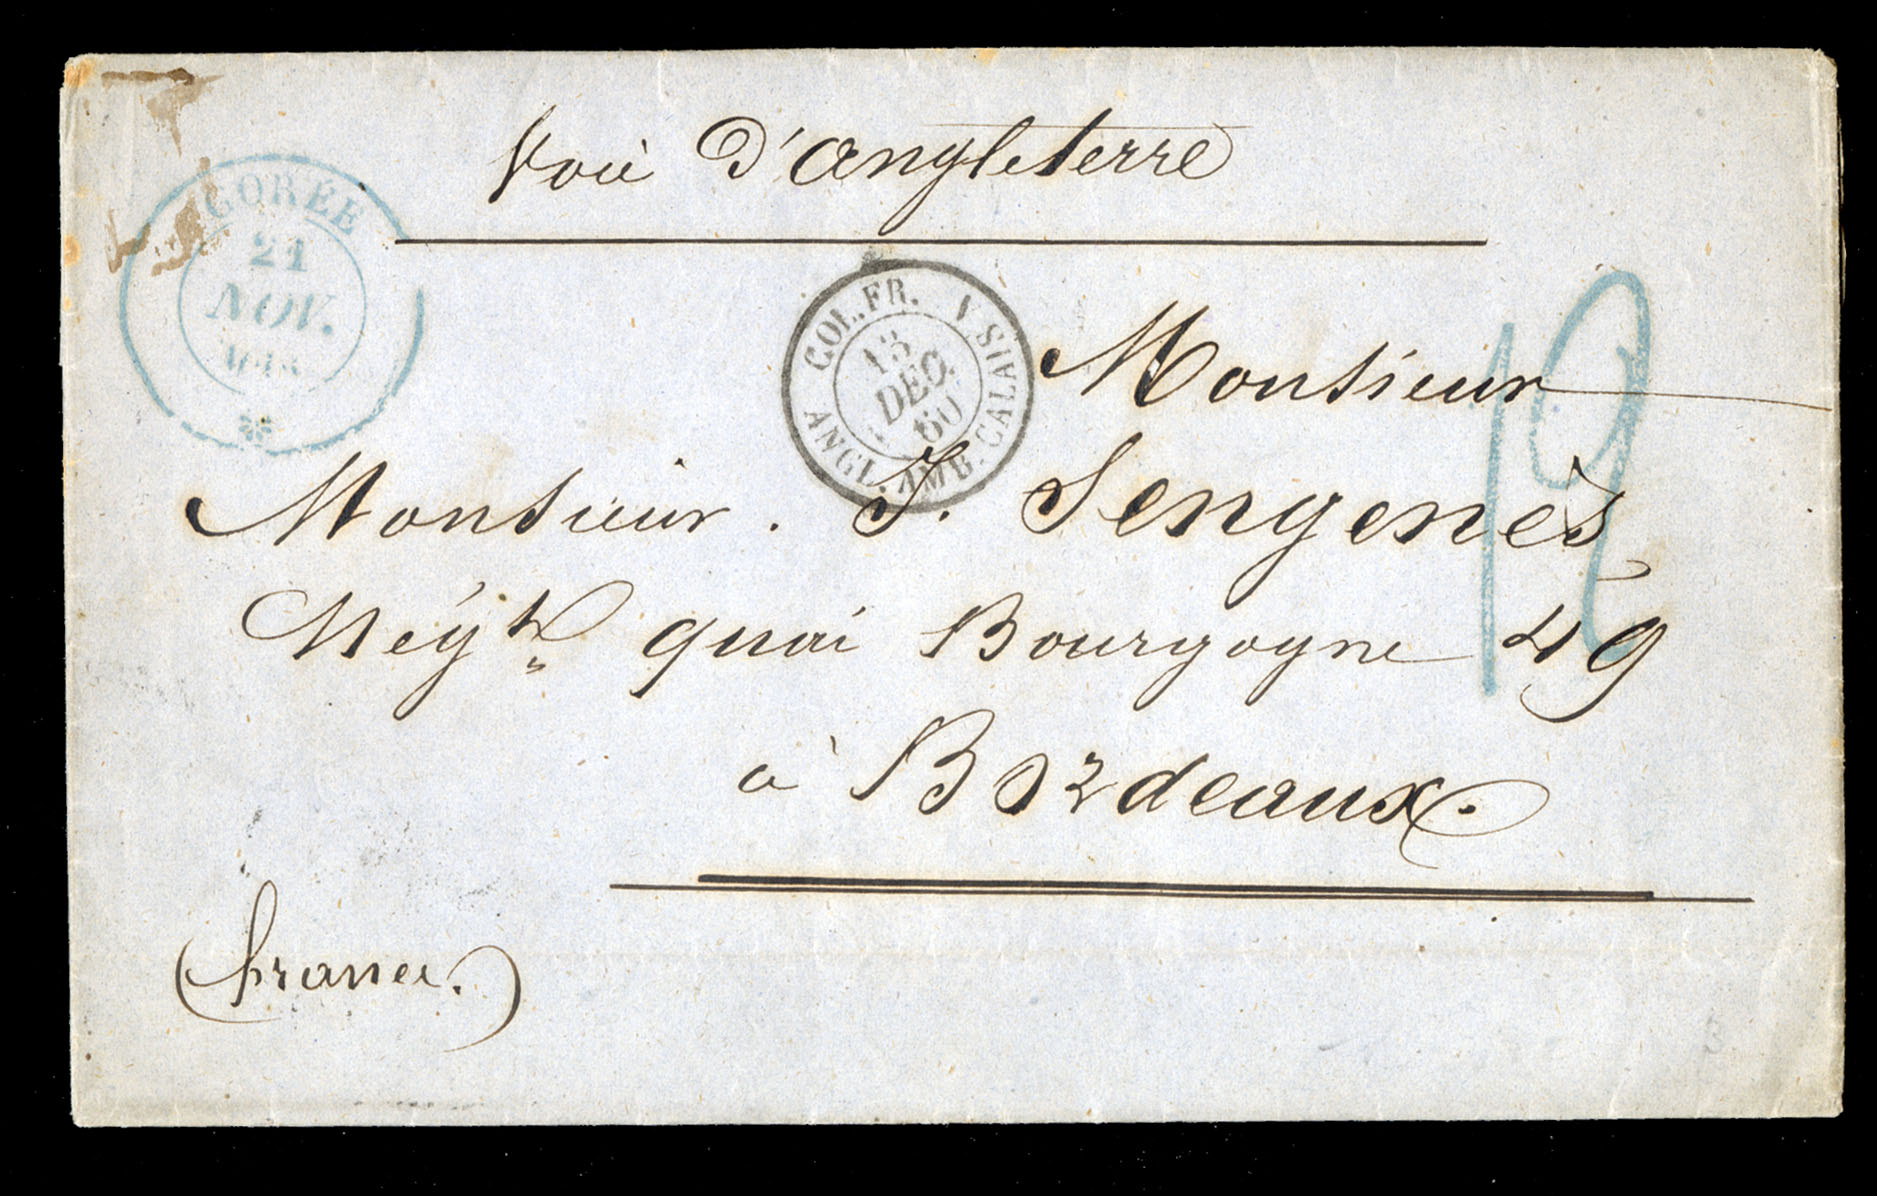 Voie d'Angleterre
GORÉE
21
NOV.
COL.FR. V SIALAƆ
13
DEC.
60
ANGL. AMB. CALAIS A
12
Monsieur
Monsieur. J. Sengenès
Négt quai Bourgogne 49
à Bordeaux.
(france.)